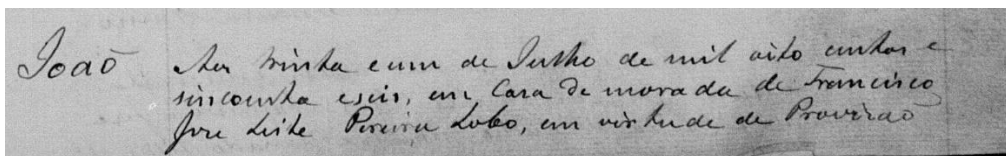 João Aos trinta e um de Julho de mil oito centos e
sincoenta e seis, em Casa de morada de Francisco
Jose Leite Pereira Lobo, em virtude de Provizão